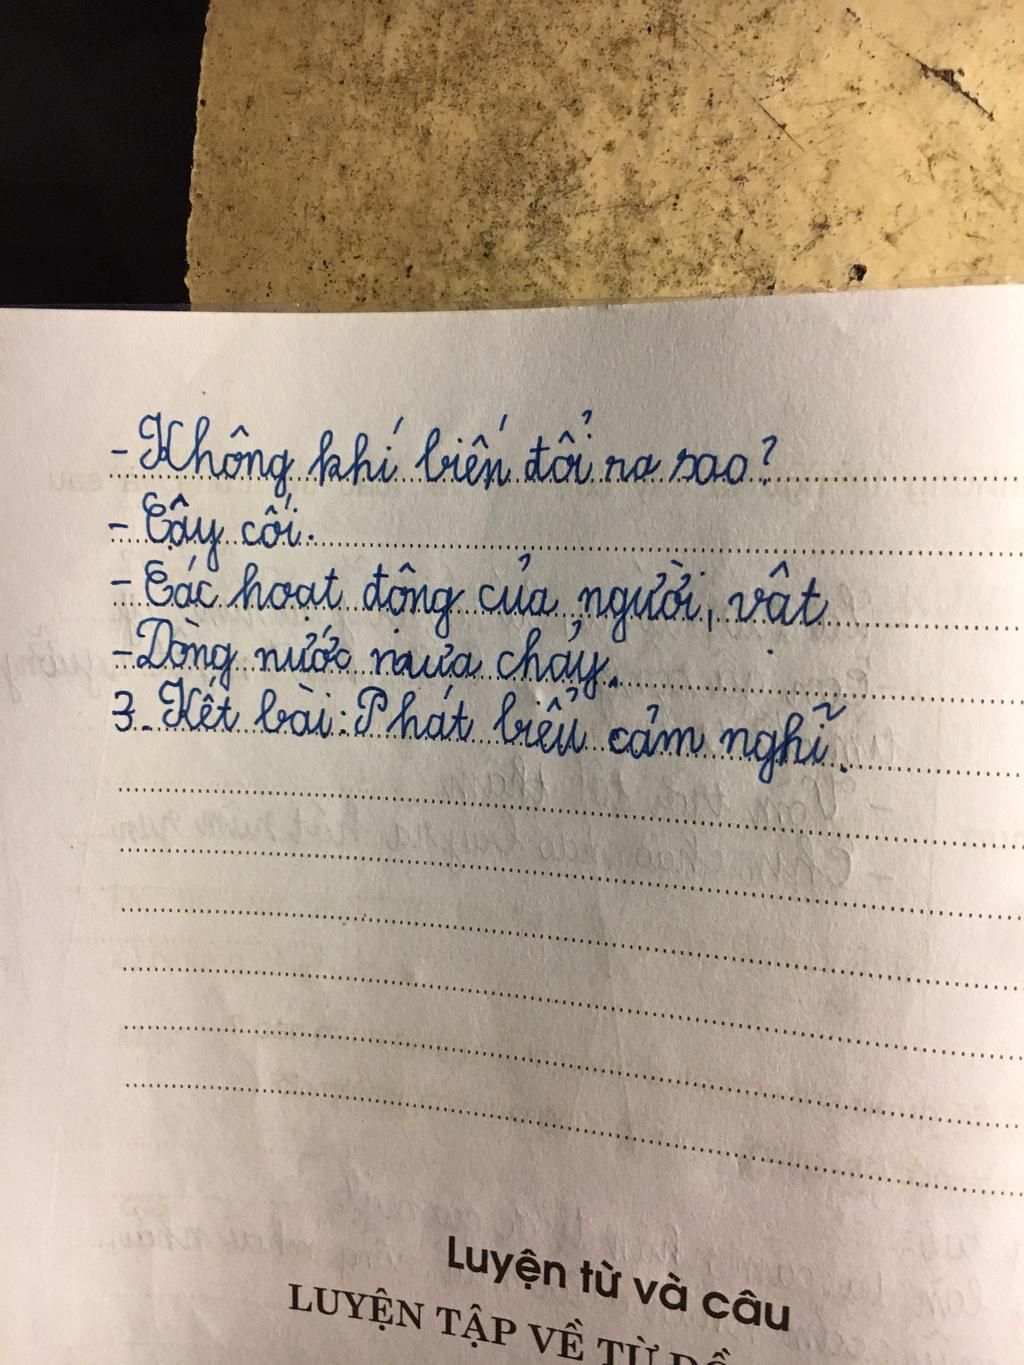 - Không khí biến đổi ra sao?
- Cây cối.
- Các hoạt động của người, vật
- Dòng nước mưa chảy.
3. Kết bài: Phát biểu cảm nghĩ.
Luyện từ và câu
LUYỆN TẬP VỀ TỪ ĐỒ